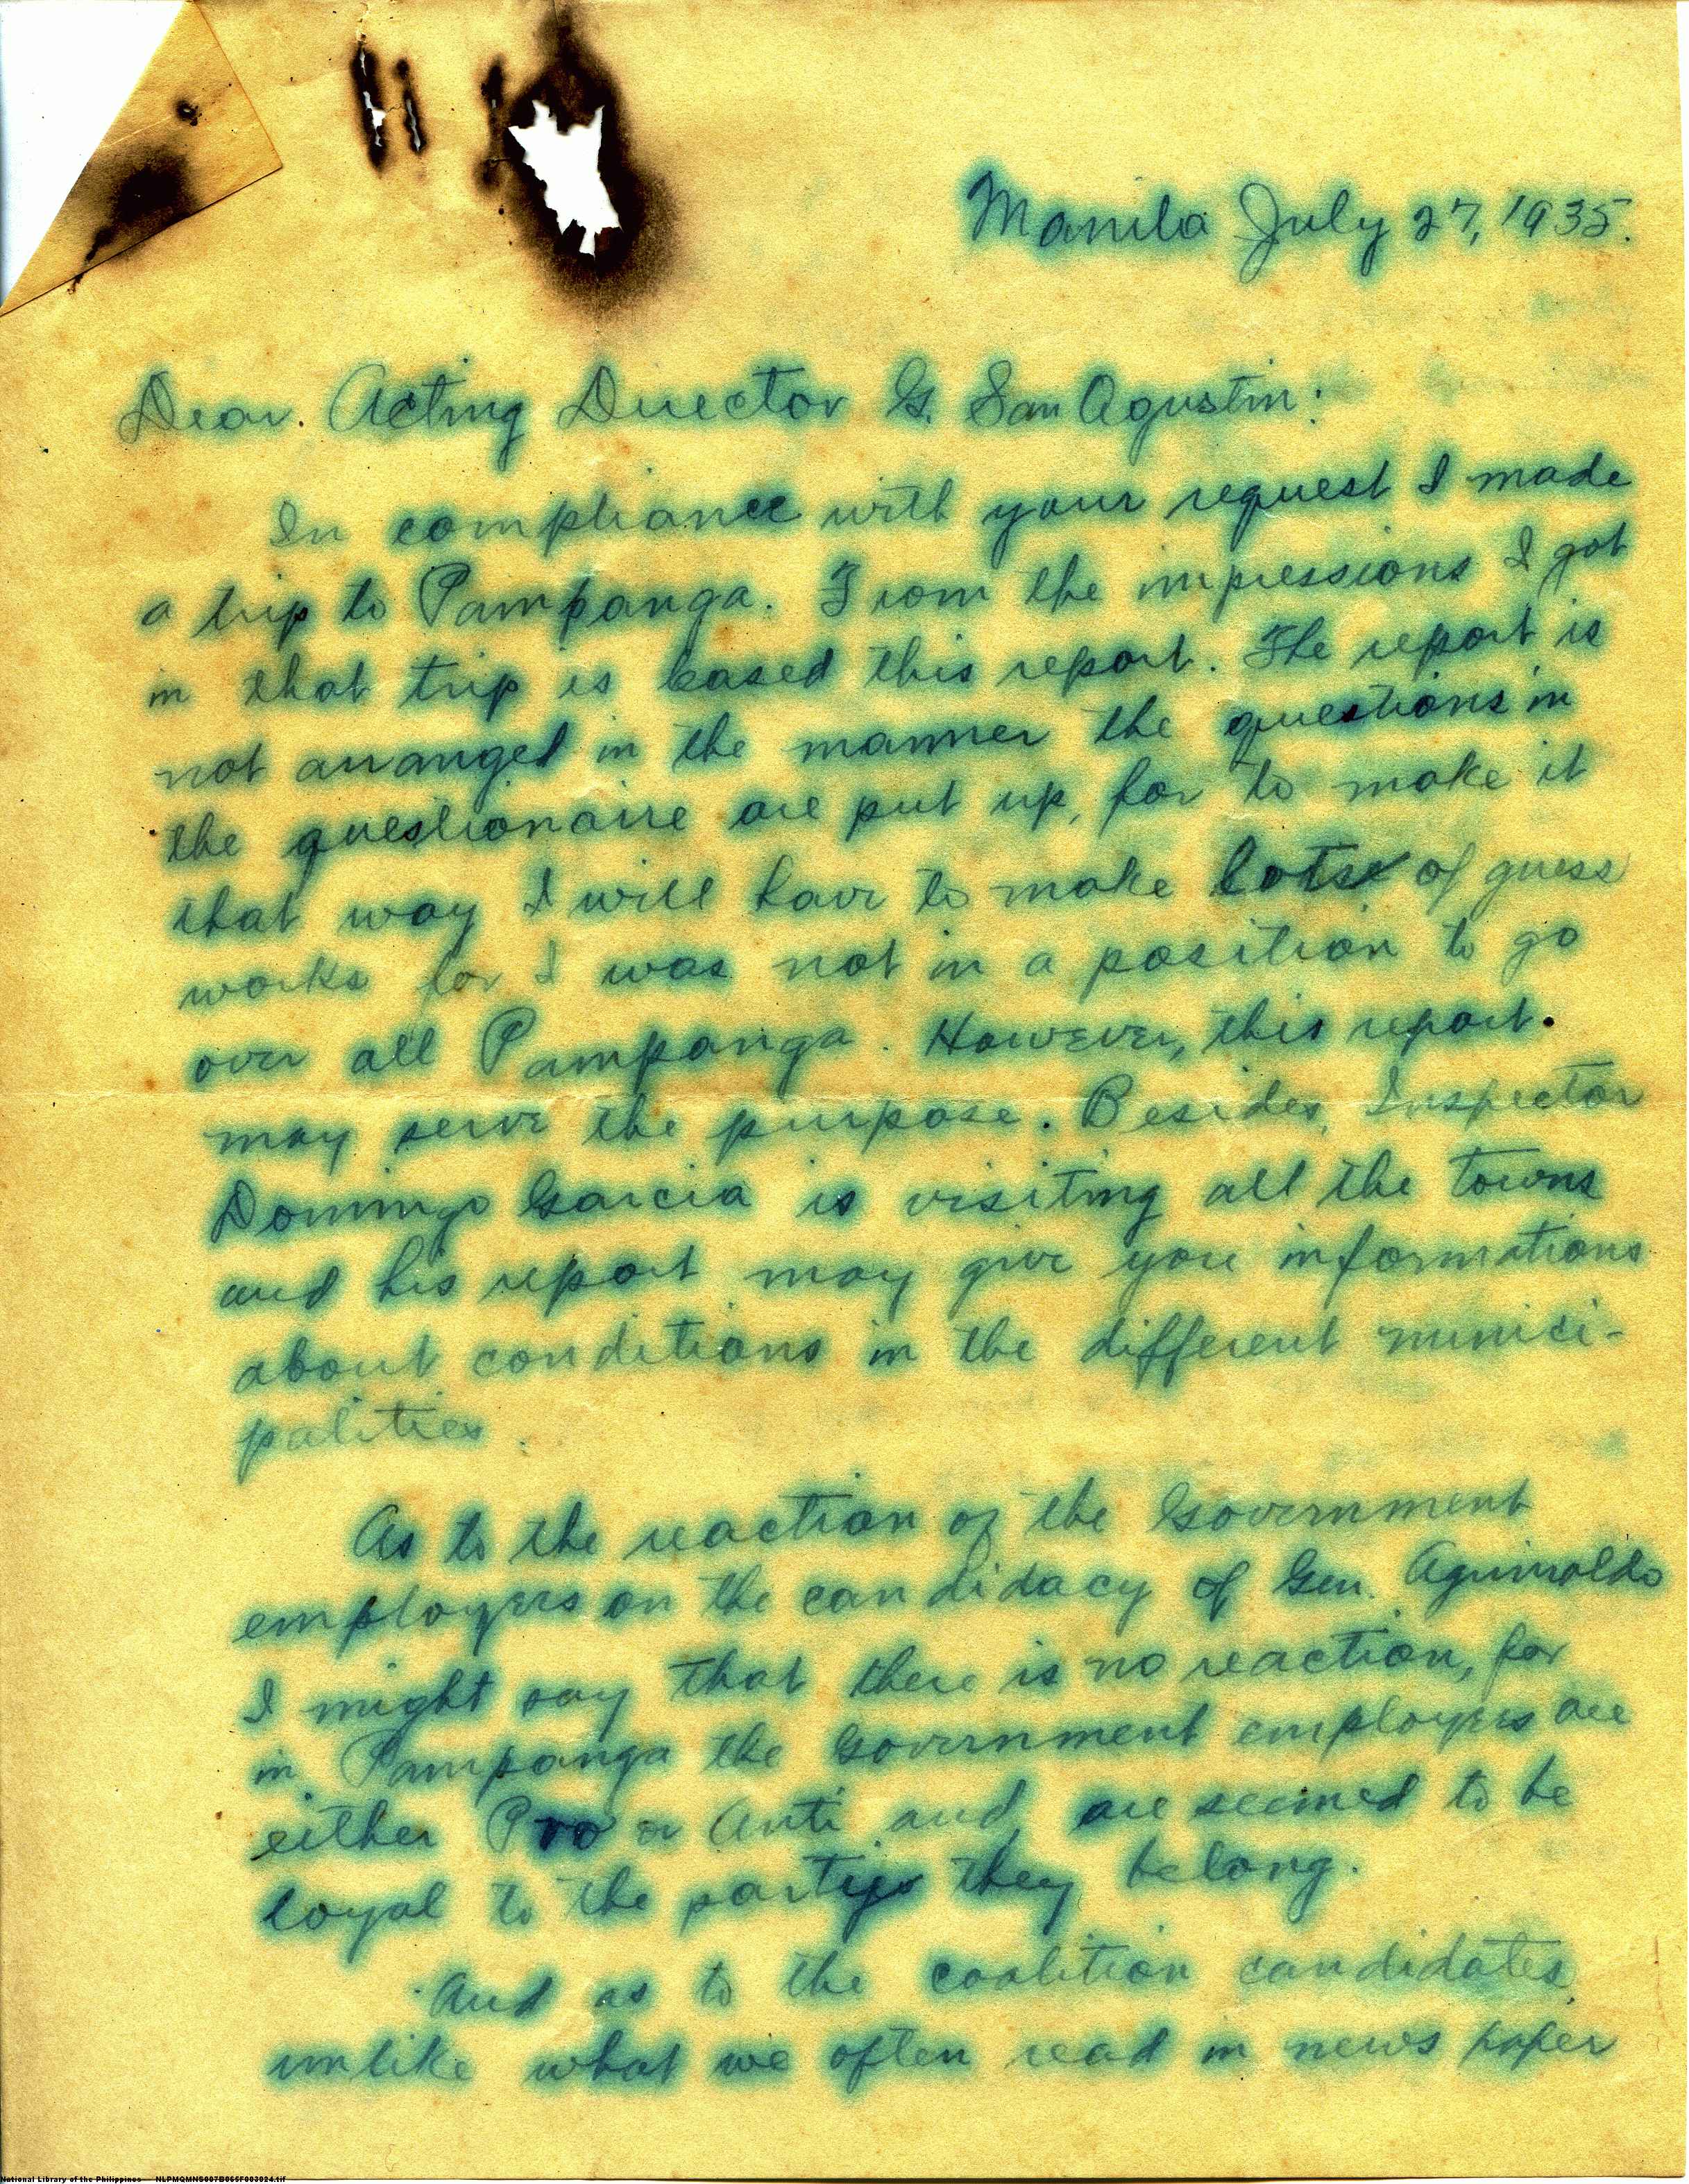 Manila July 27, 1935.
Dear. Acting Director G. San Agustin:
In compliance with your request I made
a trip to Pampanga. From the impressions I got
in that trip is based this report. The report is
not arranged in the manner the questions in
the questionaire are put up, for to make it
that way I will have to make lots of guess
works for I was not in a position to go
over all Pampanga. However, this report.
may serve the purpose. Besides, Inspector
Domingo Garcia is visiting all the towns
and his report may give you informations
about conditions in the different munici-
palities.
As to the reaction of the Government
employees on the candidacy of Gen. Aguinaldo
I might say that there is no reaction, for
in Pampanga the Government employees are
either Pro or Anti and are seemed to be
loyal to the partys they belong.
And as to the coalition candidates,
unlike what we often read in news paper
National Library of the Philippines NLPMQMNS007B065F003024.tif